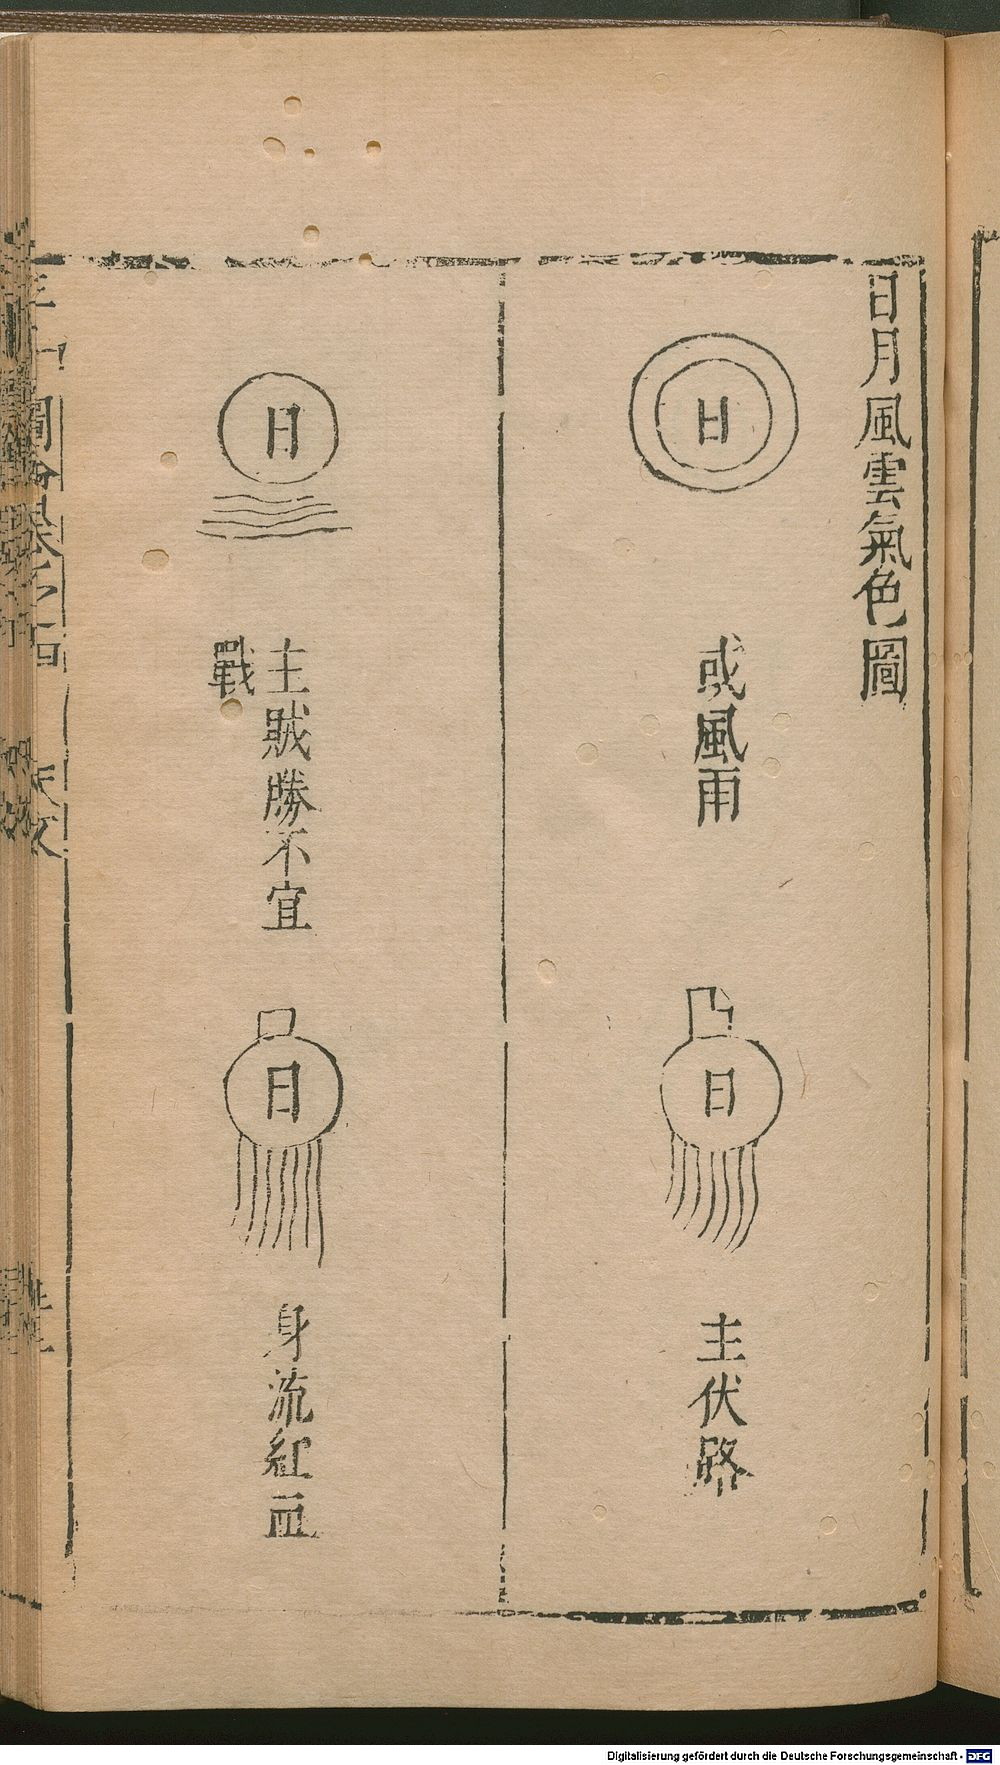 日月風雲氣色圖
日
或風雨
日
主伏路
日
主賊勝不宜
戰
日
身流紅血
天文
Digitalisierung gefördert durch die Deutsche Forschungsgemeinschaft - DFG